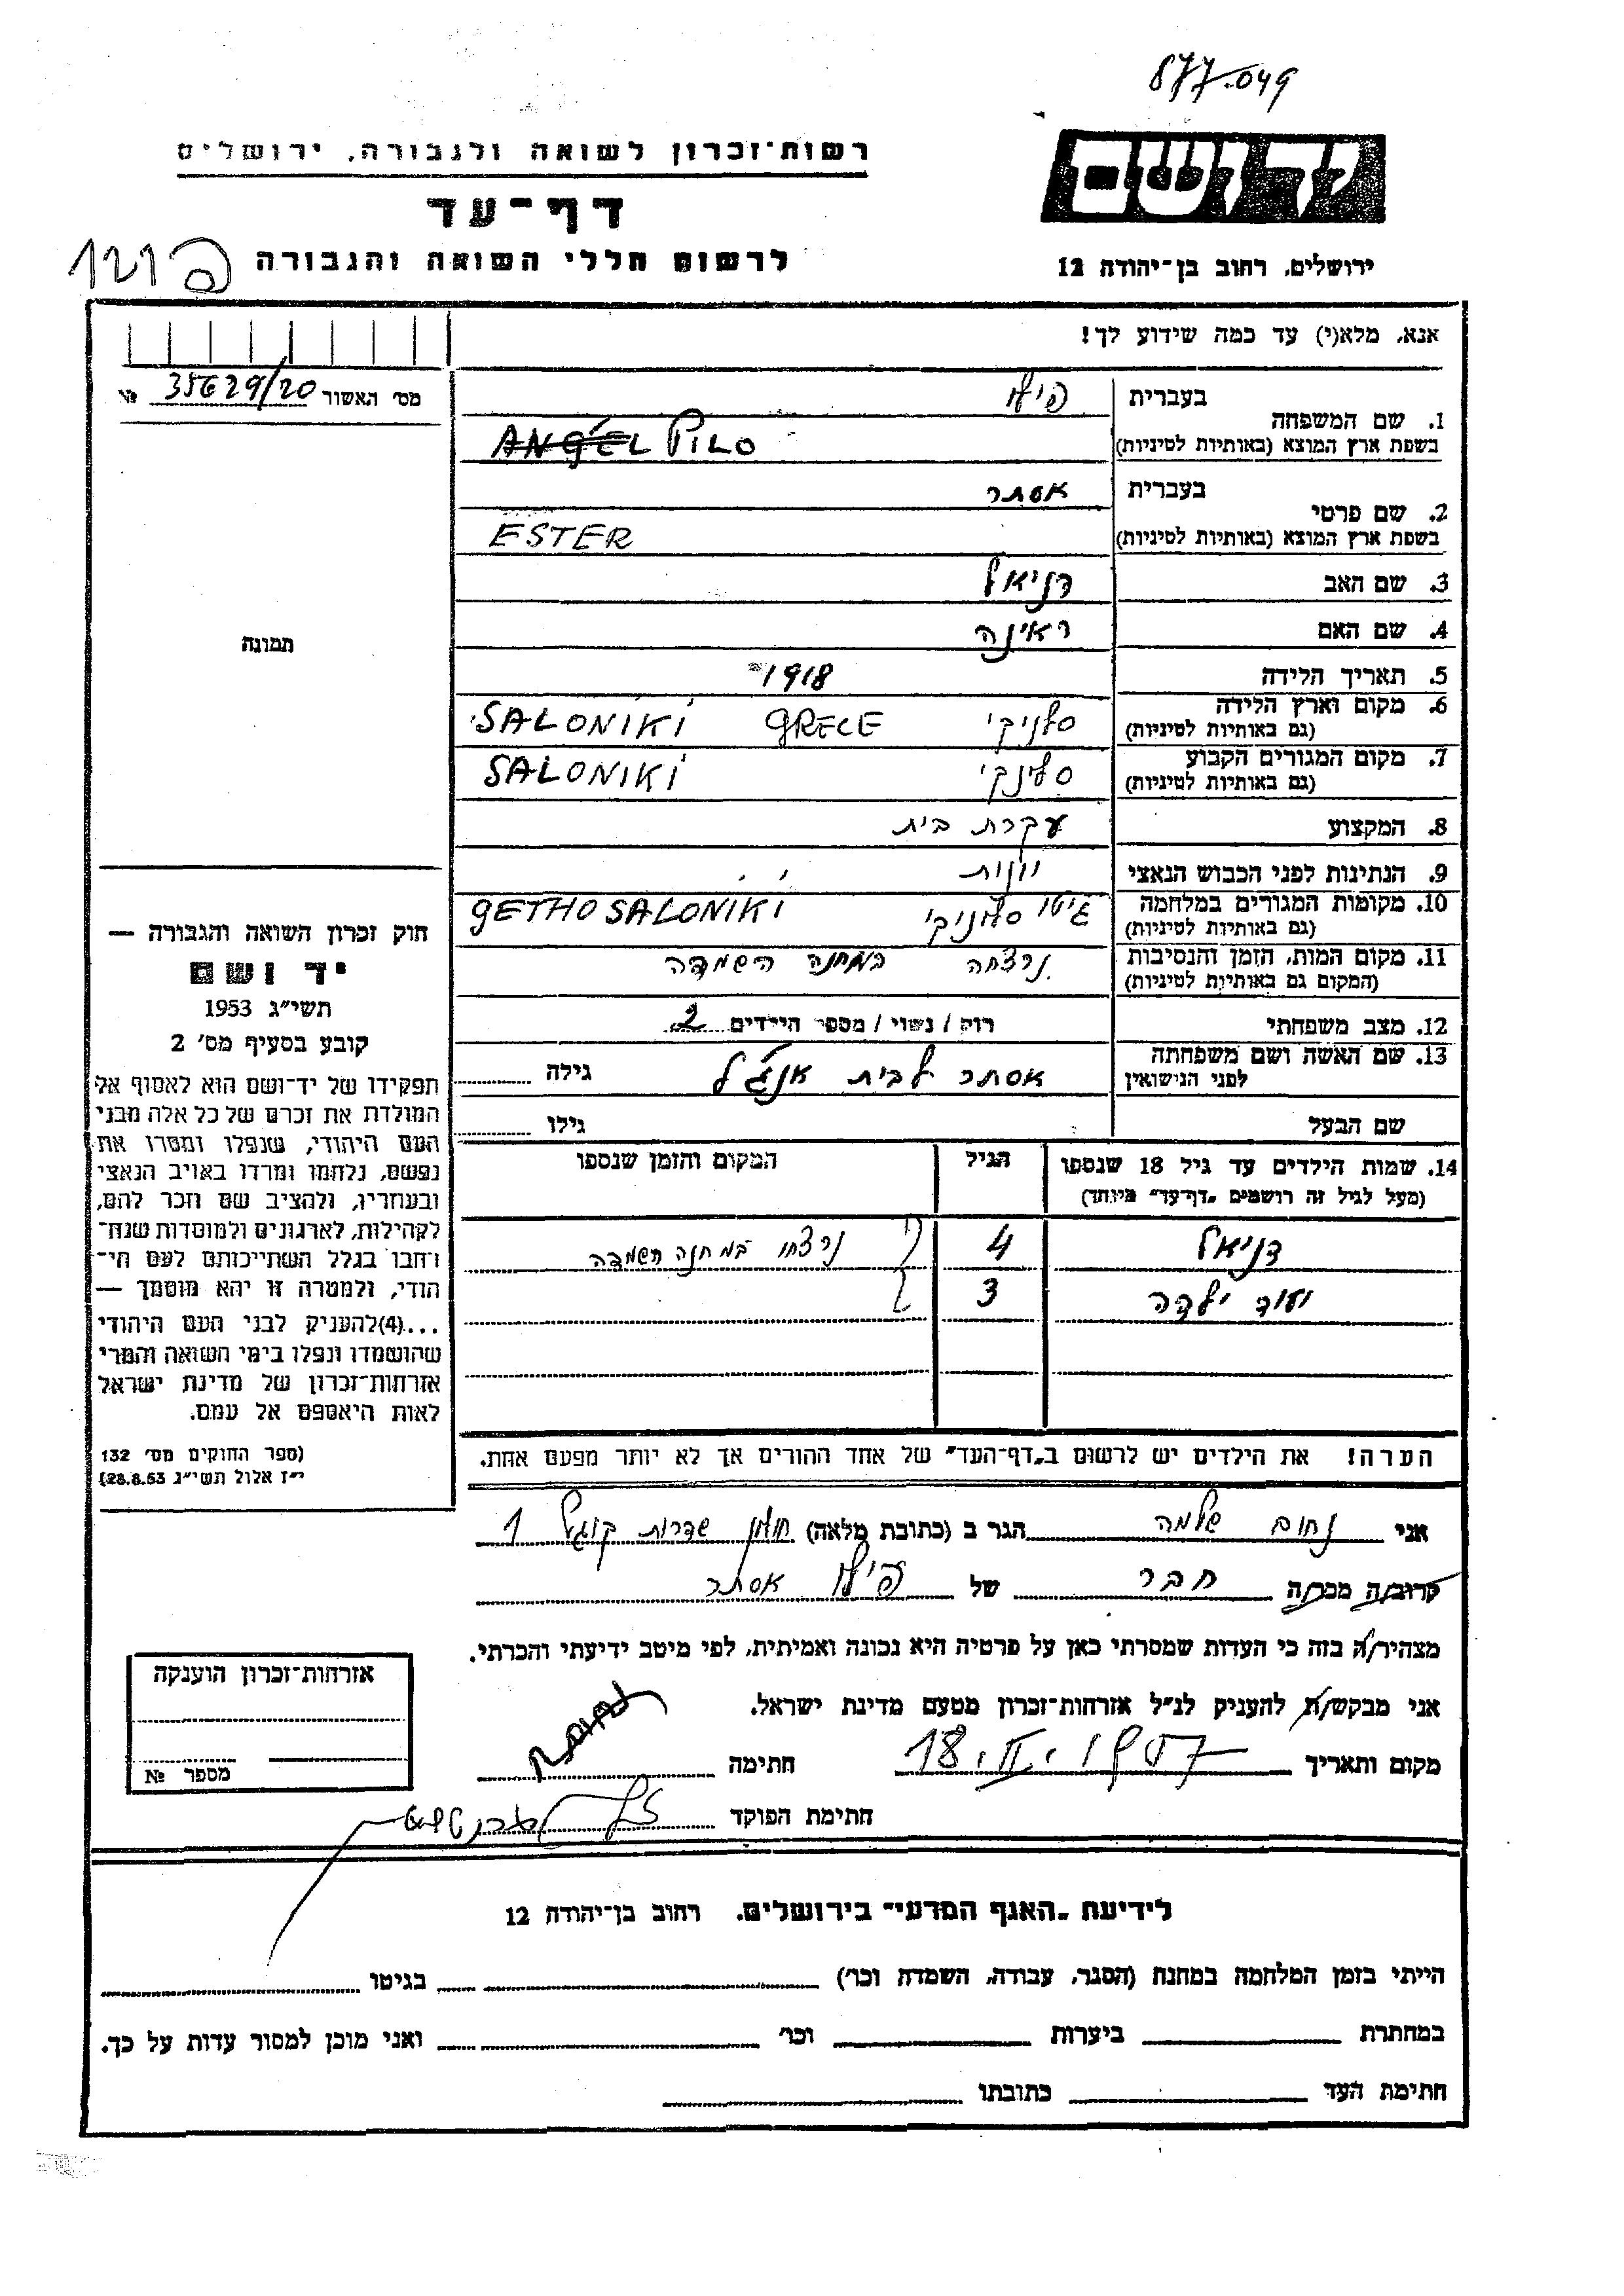 877.049
רשות־זכרון לשואה ולגבורה, ירושלים
יד ושם
דף־עד
לרשום חללי השואה והגבורה
ירושלים, רחוב בן־יהודה 12
אנא, מלא(י) עד כמה שידוע לך!
מס׳ האשור 35629/20 №
1. שם המשפחה
בעברית פילו
בשפת ארץ המוצא (באותיות לטיניות) ANGEL PILO
2. שם פרטי
בעברית אסתר
בשפת ארץ המוצא (באותיות לטיניות) ESTER
3. שם האב דניאל
4. שם האם ראינה
5. תאריך הלידה 1918
6. מקום וארץ הלידה
(גם באותיות לטיניות) סלניקי GRECE SALONIKI
7. מקום המגורים הקבוע
(גם באותיות לטיניות) סלינקי SALONIKI
8. המקצוע עקרת בית
9. הנתינות לפני הכבוש הנאצי יונות
10. מקומות המגורים במלחמה
(גם באותיות לטיניות) גיטו סלוניקי GETHO SALONIKI
11. מקום המות, הזמן והנסיבות
(המקום גם באותיות לטיניות) נרצחה במחנה השמדה
12. מצב משפחתי רוק / נשוי / מספר הילדים 2
13. שם האשה ושם משפחתה
לפני הנישואין אסתר לבית אנג׳ל גילה
שם הבעל גילו
14. שמות הילדים עד גיל 18 שנספו
(מעל לגיל זה רושמים „דף־עד״ מיוחד)
הגיל
המקום והזמן שנספו
דניאל 4 נרצחו במחנה השמדה
ועוד ילדה 3
הערה! את הילדים יש לרשום ב„דף־העד״ של אחד ההורים אך לא יותר מפעם אחת.
תמונה
חוק זכרון השואה והגבורה —
יד ושם
תשי״ג 1953
קובע בסעיף מס׳ 2
תפקידו של יד־ושם הוא לאסוף אל
המולדת את זכרם של כל אלה מבני
העם היהודי, שנפלו ומסרו את
נפשם, נלחמו ומרדו באויב הנאצי
ובעוזריו, ולהציב שם וזכר להם,
לקהילות, לארגונים ולמוסדות שנח־
רחבו בגלל השתייכותם לעם הי־
הודי, ולמטרה זו יהא מוסמך —
...(4)להעניק לבני העם היהודי
שהושמדו ונפלו בימי השואה והמרי
אזרחות־זכרון של מדינת ישראל
לאות היאספם אל עמם.
(ספר החוקים מס׳ 132
י״ז אלול תשי״ג 28.8.53)
אני נחום שלמה הגר ב (כתובת מלאה) חולון שדרות קוגל 1
קרוב/ה מכר/ה חבר של פילו אסתר
מצהיר/ה בזה כי העדות שמסרתי כאן על פרטיה היא נכונה ואמיתית, לפי מיטב ידיעתי והכרתי.
אני מבקש/ת להעניק לנ״ל אזרחות־זכרון מטעם מדינת ישראל.
מקום ותאריך 18.II.1957 חתימה
חתימת הפוקד
אזרחות־זכרון הוענקה
מספר №
לידיעת „האגף המדעי״ בירושלים, רחוב בן־יהודה 12
הייתי בזמן המלחמה במחנה (הסגר, עבודה, השמדה וכו׳) בגיטו
במחתרת ביערות וכו׳ ואני מוכן למסור עדות על כך.
חתימת העד כתובתו